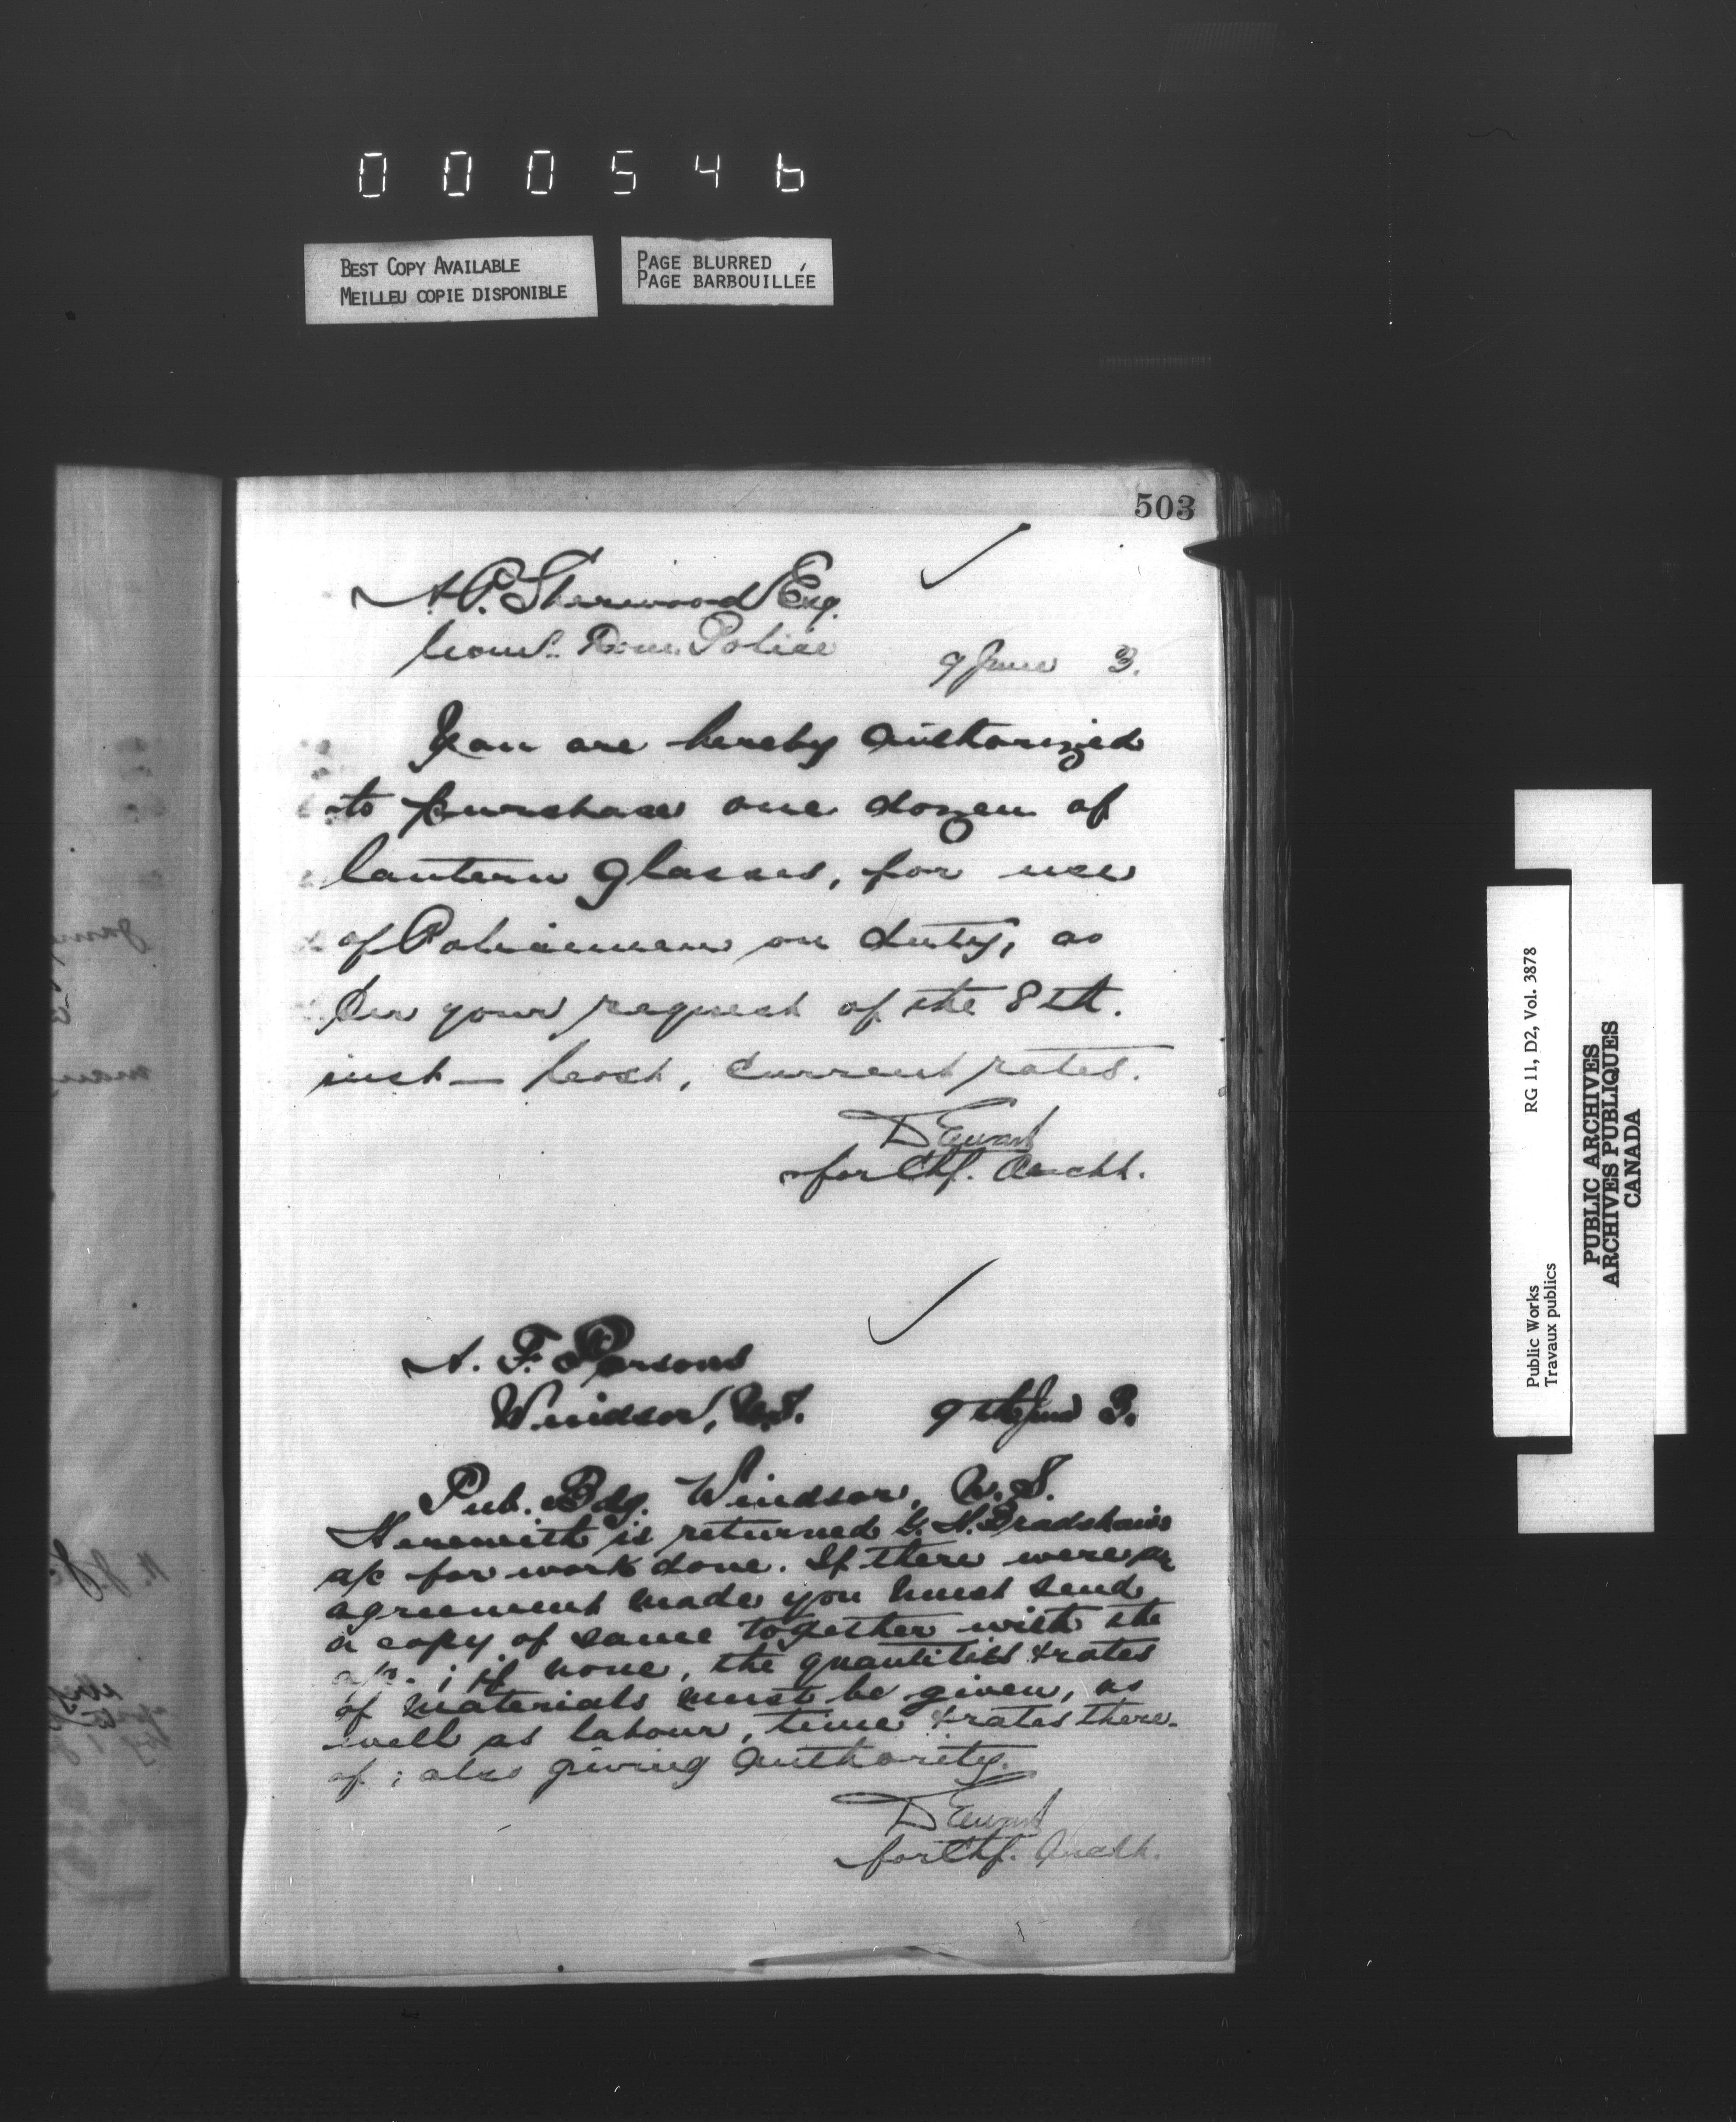 000546
BEST COPY AVAILABLE
MEILLEU COPIE DISPONIBLE
PAGE BLURRED
PAGE BARBOUILLÉE
503
A.P. Sherwood Esq.
Comr. Dom. Police
9 June 3.
You are hereby authorized
to purchase one dozen of
lantern glasses, for use
of Policemen on duty, as
per your request of the 8th.
inst — Cost, current rates.
D Ewart
for Chf. Archt.
A. F. Parsons
Windsor, N.S. 9th June 3.
Pub. Bdg. Windsor, N.S.
Herewith is returned G. H. Bradshaws
a/c for work done. If there were an
agreement made you must send
a copy of same together with the
a/c. ; if none, the quantities & rates
of materials must be given, as
well as labour, time & rates there-
of ; also giving authority.
D Ewart
for Chf. Archt.
Public Works
Travaux publics
RG 11, D2, Vol. 3878
PUBLIC ARCHIVES
ARCHIVES PUBLIQUES
CANADA